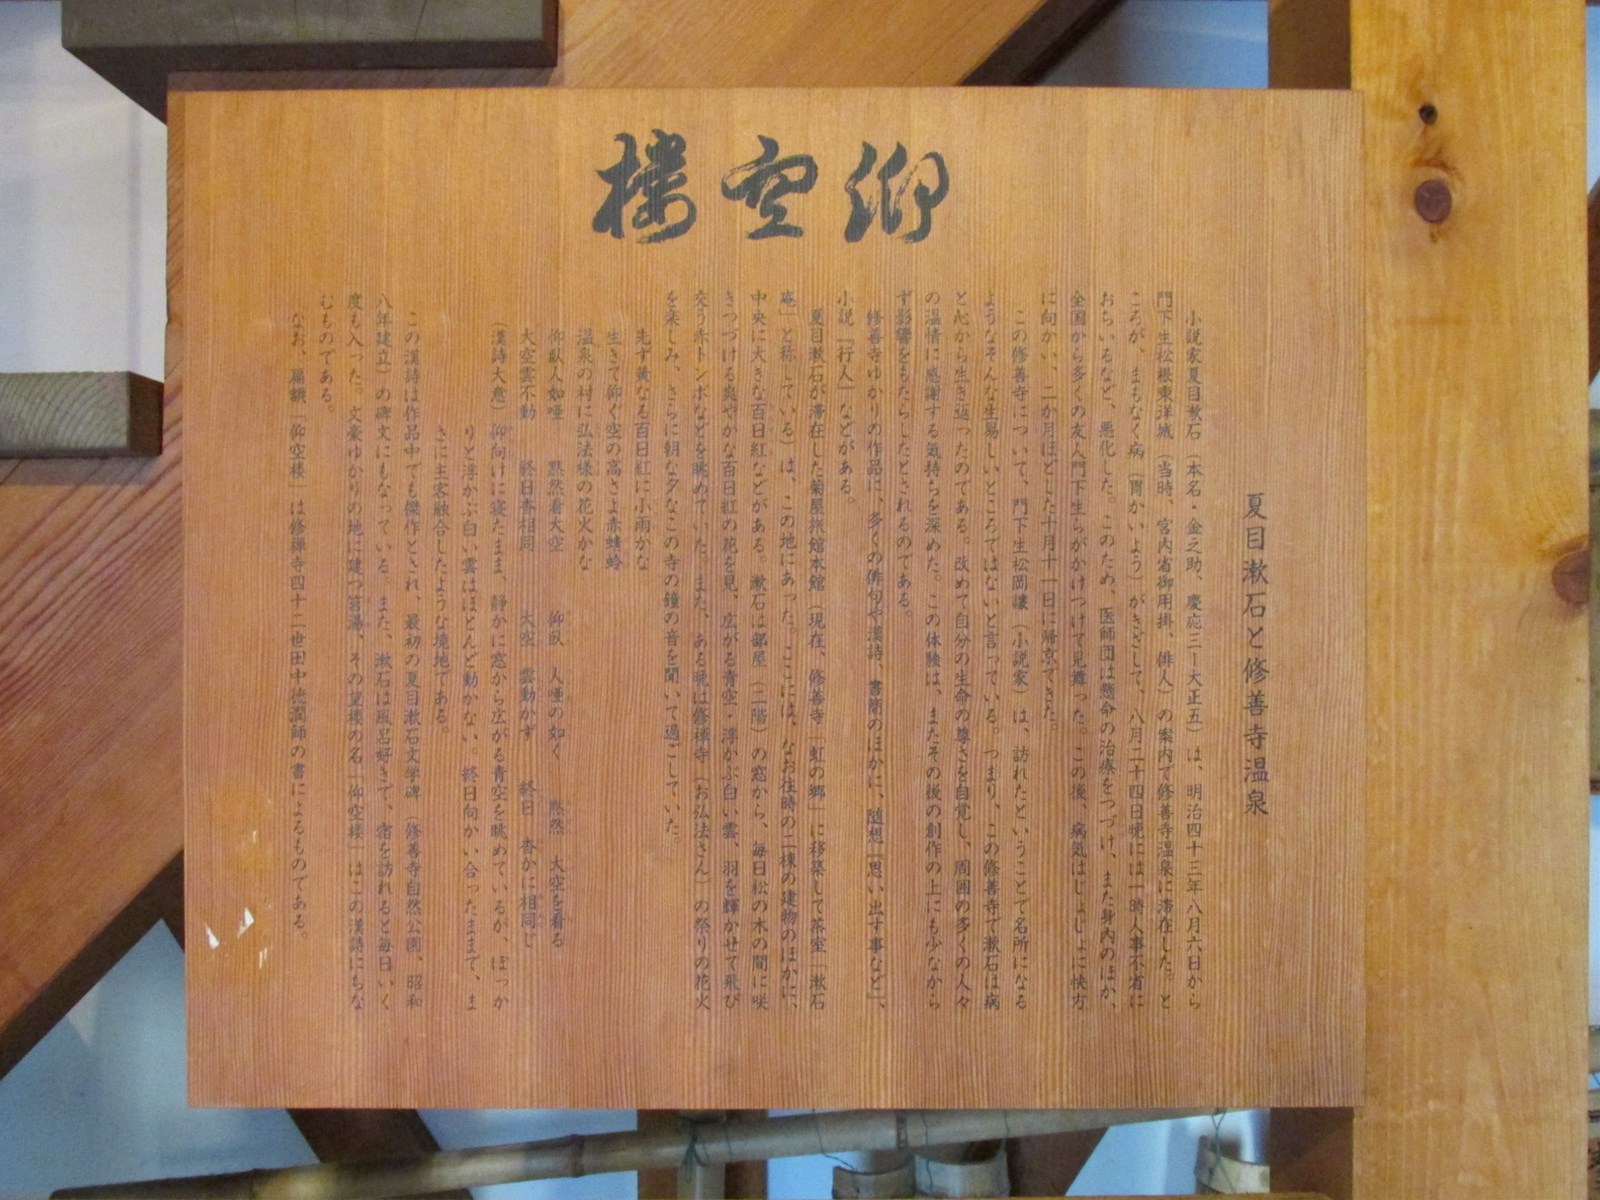 仰空楼
夏目漱石と修善寺温泉
小説家夏目漱石（本名・金之助、慶応三ー大正五）は、明治四十三年八月六日から
門下生松根東洋城（当時、宮内省御用掛、俳人）の案内で修善寺温泉に滞在した。と
ころが、まもなく病（胃かいよう）がきざして、八月二十四日晩には一時人事不省に
おちいるなど、悪化した。このため、医師団は懸命の治療をつづけ、また身内のほか、
全国から多くの友人門下生らがかけつけて見舞った。この後、病気はじょじょに快方
に向かい、二か月ほどした十月十一日に帰京できた。
この修善寺について、門下生松岡譲（小説家）は、訪れたということで名所になる
ようなそんな生易しいところではないと言っている。つまり、この修善寺で漱石は病
と死から生き返ったのである。改めて自分の生命の尊さを自覚し、周囲の多くの人々
の温情に感謝する気持ちを深めた。この体験は、またその後の創作の上にも少なから
ず影響をもたらしたとされるのである。
修善寺ゆかりの作品に、多くの俳句や漢詩、書簡のほかに、随想『思い出す事など』、
小説『行人』などがある。
夏目漱石が滞在した菊屋旅館本館（現在、修善寺「虹の郷」に移築して茶室「漱石
庵」と称している）は、この地にあった。ここには、なお往時の二棟の建物のほかに、
中央に大きな百日紅などがある。漱石は部屋（二階）の窓から、毎日松の木の間に咲
きつづける爽やかな百日紅の花を見、広がる青空・浮かぶ白い雲、羽を輝かせて飛び
交う赤トンボなどを眺めていた。また、ある晩は修禅寺（お弘法さん）の祭りの花火
を楽しみ、さらに朝な夕なこの寺の鐘の音を聞いて過ごしていた。
先ず黄なる百日紅に小雨かな
生きて仰ぐ空の高さよ赤蜻蛉
温泉の村に弘法様の花火かな
仰臥人如唖　黙然看大空　仰臥　人唖の如く　黙然　大空を看る
大空雲不動　終日杳相同　大空　雲動かず　終日　杳かに相同じ
（漢詩大意）仰向けに寝たまま、静かに窓から広がる青空を眺めているが、ぽっか
りと浮かぶ白い雲はほとんど動かない。終日向かい合ったままで、ま
さに主客融合したような境地である。
この漢詩は作品中でも傑作とされ、最初の夏目漱石文学碑（修善寺自然公園、昭和
八年建立）の碑文にもなっている。また、漱石は風呂好きで、宿を訪れると毎日いく
度も入った。文豪ゆかりの地に建つ筥湯、その望楼の名「仰空楼」はこの漢詩にちな
むものである。
なお、扁額「仰空楼」は修禅寺四十二世田中徳潤師の書によるものである。